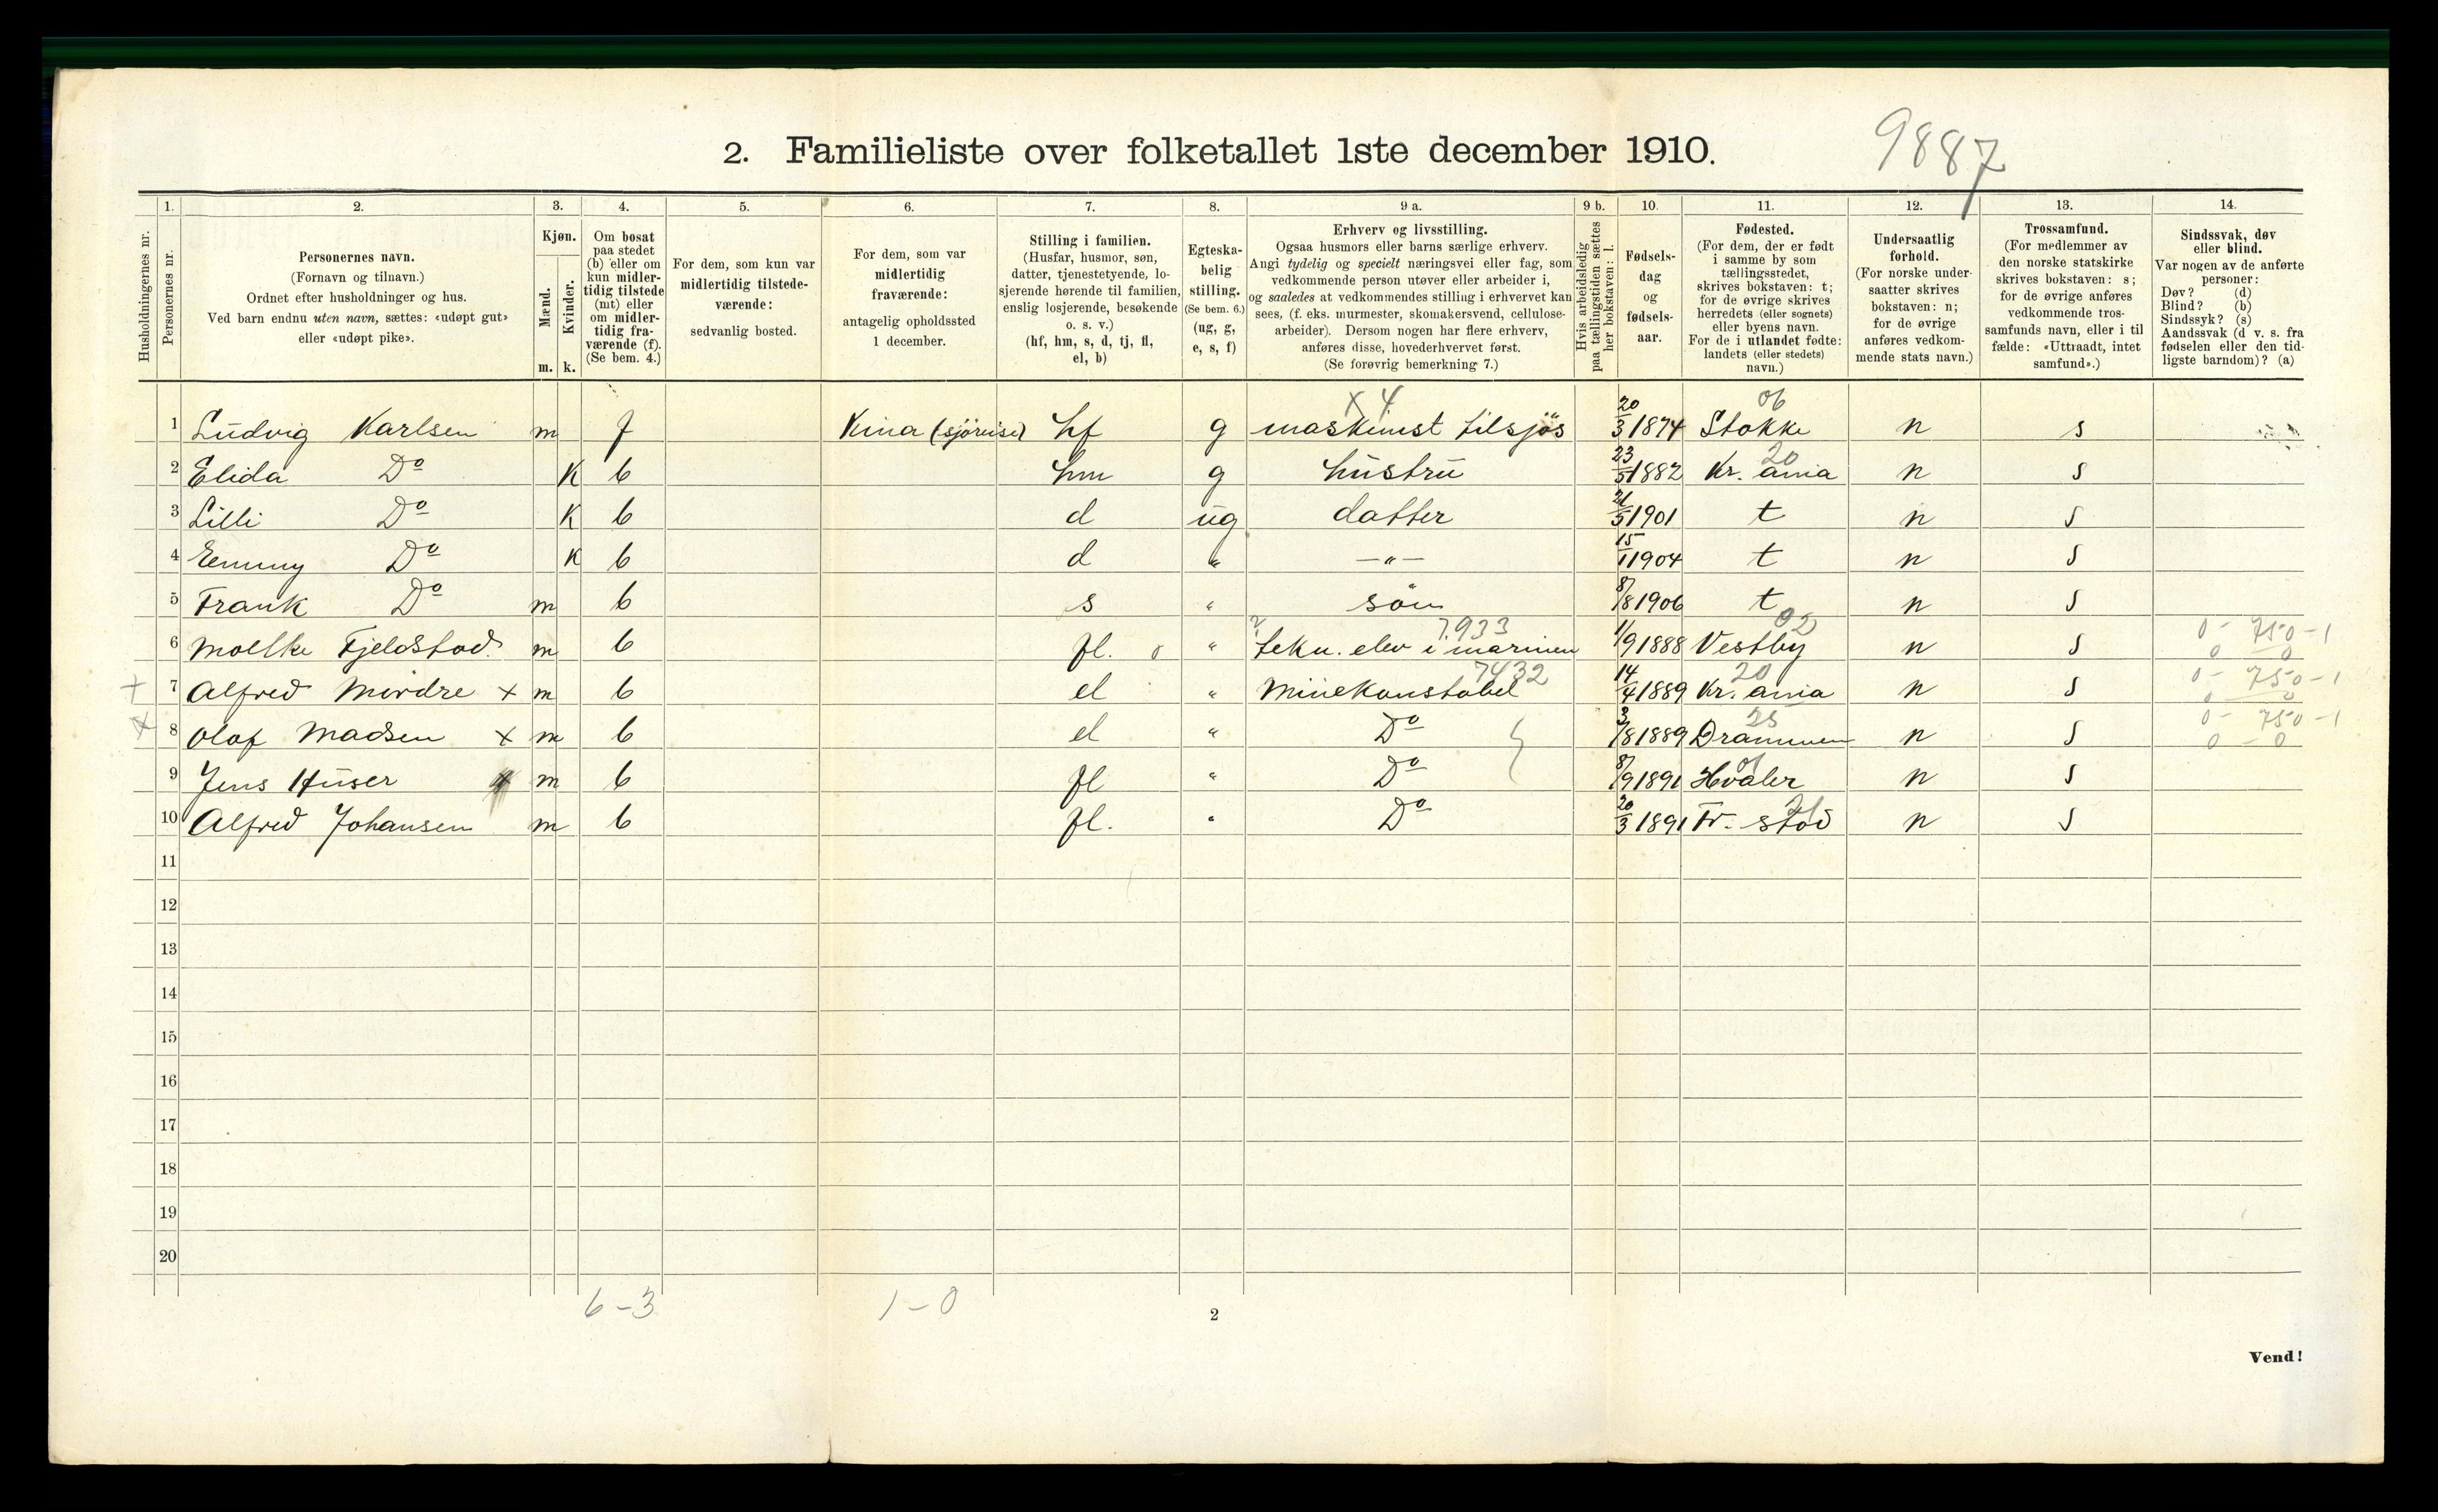 2. Familieliste over folketallet 1ste december 1910.
9887
Husholdningernes nr.
1.
Personernes nr.
2.
Personernes navn.
(Fornavn og tilnavn.)
Ordnet efter husholdninger og hus.
Ved barn endnu uten navn, sættes: «udøpt gut»
eller «udøpt pike».
3.
Kjøn.
Mænd.
Kvinder.
m. k.
4.
Om bosat
paa stedet
(b) eller om
kun midler-
tidig tilstede
(mt) eller
om midler-
tidig fra-
værende (f).
(Se bem. 4.)
5.
For dem, som kun var
midlertidig tilstede-
værende:
sedvanlig bosted.
6.
For dem, som var
midlertidig
fraværende:
antagelig opholdssted
1 december.
7.
Stilling i familien.
(Husfar, husmor, søn,
datter, tjenestetyende, lo-
sjerende hørende til familien,
enslig losjerende, besøkende
o. s. v.)
(hf, hm, s, d, tj, fl,
el, b)
8.
Egteska-
belig
stilling.
(Se bem. 6.)
(ug, g,
e, s, f)
9 a.
Erhverv og livsstilling.
Ogsaa husmors eller barns særlige erhverv.
Angi tydelig og specielt næringsvei eller fag, som
vedkommende person utøver eller arbeider i,
og saaledes at vedkommendes stilling i erhvervet kan
sees, (f. eks. murmester, skomakersvend, cellulose-
arbeider). Dersom nogen har flere erhverv,
anføres disse, hovederhvervet først.
(Se forøvrig bemerkning 7.)
9 b.
Hvis arbeidsledig
paa tællingstiden sættes
her bokstaven: l.
10.
Fødsels-
dag
og
fødsels-
aar.
11.
Fødested.
(For dem, der er født
i samme by som
tællingsstedet,
skrives bokstaven: t;
for de øvrige skrives
herredets (eller sognets)
eller byens navn.
For de i utlandet fødte:
landets (eller stedets)
navn.)
12.
Undersaatlig
forhold.
(For norske under-
saatter skrives
bokstaven: n;
for de øvrige
anføres vedkom-
mende stats navn.)
13.
Trossamfund.
(For medlemmer av
den norske statskirke
skrives bokstaven: s;
for de øvrige anføres
vedkommende tros-
samfunds navn, eller i til
fælde: «Uttraadt, intet
samfund».)
14.
Sindssvak, døv
eller blind.
Var nogen av de anførte
personer:
Døv? (d)
Blind? (b)
Sindssyk? (s)
Aandssvak (d v. s. fra
fødselen eller den tid-
ligste barndom)? (a)
x 4 06
1 Ludvig Karlsen m f Kina (sjöreise) hf g maskinist tilsjös 20/3 1874 Stokke n s
20
2 Elida Do K b hm g hustru 23/5 1882 Kr. ania n s
3 Lilli Do K b d ug datter 21/5 1901 t n s
4 Emmy Do K b d " —"— 15/1 1904 t n s
5 Frank Do m b s " sön 8/8 1906 t n s
7933 02 0 - 750 - 1
6 Moltke Fjeldstad. m b fl. o " tekn. elev i marinen 1/9 1888 Vestby n s 0 0
7432 20 0 - 750 - 1
+ 7 Alfred Mördre x m b el " Minekonstabel 14/4 1889 Kr. ania n s 0 0
25 0 - 750 - 1
+ 8 Olaf Madsen x m b el " Do 3/8 1889 Drammen n s 0 - 0
9 Jens Huser x m b fl " Do 8/9 1891 Hvaler n s
21
10 Alfred Johansen m b fl. " Do 20/3 1891 Fr. stad n s
11
12
13
14
15
16
17
18
19
20
6 - 3 1 - 0
2
Vend!